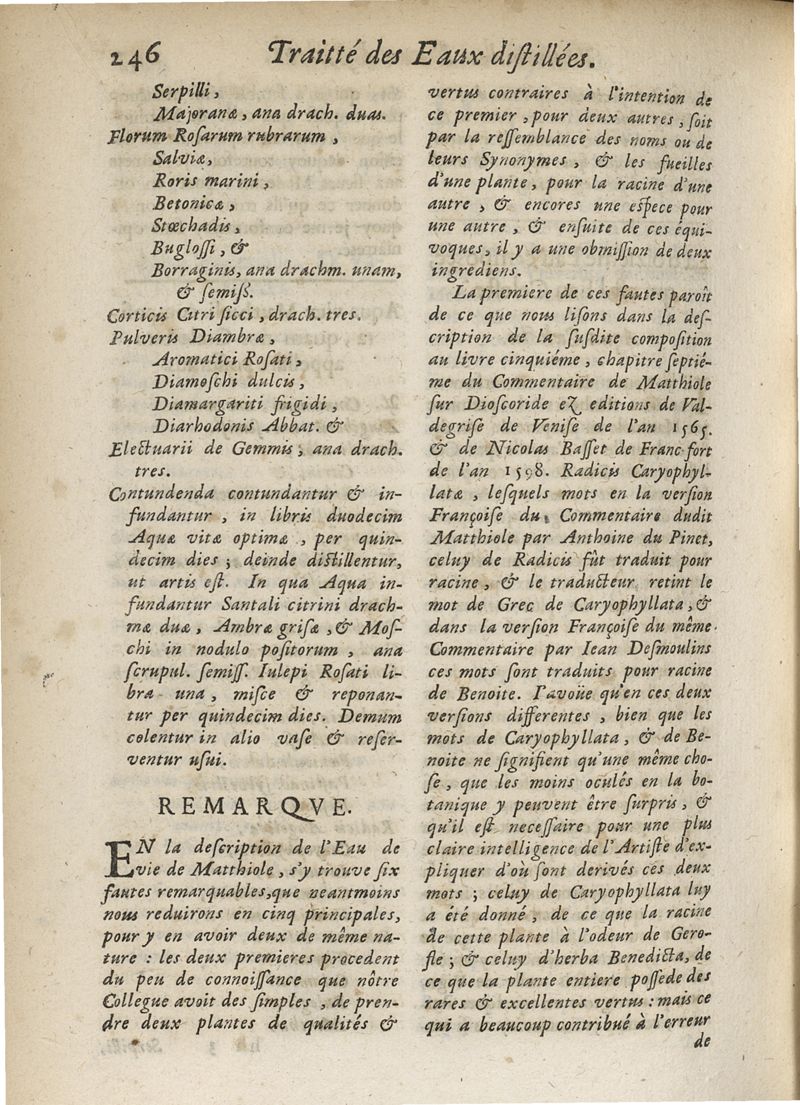 246 Traitté des Eaux diſtillées.
Serpilli,
Majoranæ, ana drach. duas.
Florum Roſarum rubrarum,
Salviæ,
Roris marini,
Betonicæ,
Stœchadis,
Bugloſſi, &
Borraginis, ana drachm. unam,
& ſemiß.
Corticis Citri ſicci, drach. tres.
Pulveris Diambræ,
Aromatici Roſati,
Diamoſchi dulcis,
Diamargariti frigidi,
Diarhodonis Abbat. &
Electuarii de Gemmis, ana drach.
tres.
Contundenda contundantur & in-
fundantur, in libris duodecim
Aquæ vitæ optimæ, per quin-
decim dies; deinde diſtillentur,
ut artis eſt. In qua Aqua in-
fundantur Santali citrini drach-
mæ duæ, Ambræ griſæ, & Moſ-
chi in nodulo poſitorum, ana
ſcrupul. ſemiſſ. Iulepi Roſati li-
bra una, miſce & reponan-
tur per quindecim dies. Demum
colentur in alio vaſe & reſer-
ventur uſui.
REMARQVE.
EN la deſcription de l'Eau de
vie de Matthiole, s'y trouve ſix
fautes remarquables, que neantmoins
nous reduirons en cinq principales,
pour y en avoir deux de même na-
ture : les deux premieres procedent
du peu de connoiſſance que nôtre
Collegue avoit des ſimples, de pren-
dre deux plantes de qualités &
vertus contraires à l'intention de
ce premier, pour deux autres, ſoit
par la reſſemblance des noms ou de
leurs Synonymes, & les fueilles
d'une plante, pour la racine d'une
autre, & encores une eſpece pour
une autre, & enſuite de ces équi-
voques, il y a une obmiſſion de deux
ingrediens.
La premiere de ces fautes paroît
de ce que nous liſons dans la deſ-
cription de la ſuſdite compoſition
au livre cinquiéme, chapitre ſeptié-
me du Commentaire de Matthiole
ſur Dioſcoride ez editions de Val-
degriſe de Veniſe de l'an 1565.
& de Nicolas Baſſet de Francfort
de l'an 1598. Radicis Caryophyl-
latæ, leſquels mots en la verſion
Françoiſe du Commentaire dudit
Matthiole par Anthoine du Pinet,
celuy de Radicis fût traduit pour
racine, & le traducteur retint le
mot de Grec de Caryophyllata, &
dans la verſion Françoiſe du même
Commentaire par Iean Deſmoulins
ces mots ſont traduits pour racine
de Benoite. I'avoüe qu'en ces deux
verſions differentes, bien que les
mots de Caryophyllata, & de Be-
noite ne ſignifient qu'une même cho-
ſe, que les moins oculés en la bo-
tanique y peuvent être ſurpris, &
qu'il eſt neceſſaire pour une plus
claire intelligence de l'Artiſte d'ex-
pliquer d'où ſont derivés ces deux
mots ; celuy de Caryophyllata luy
a été donné, de ce que la racine
de cette plante à l'odeur de Gero-
fle ; & celuy d'herba Benedicta, de
ce que la plante entiere poſſede des
rares & excellentes vertus : mais ce
qui a beaucoup contribué à l'erreur
de